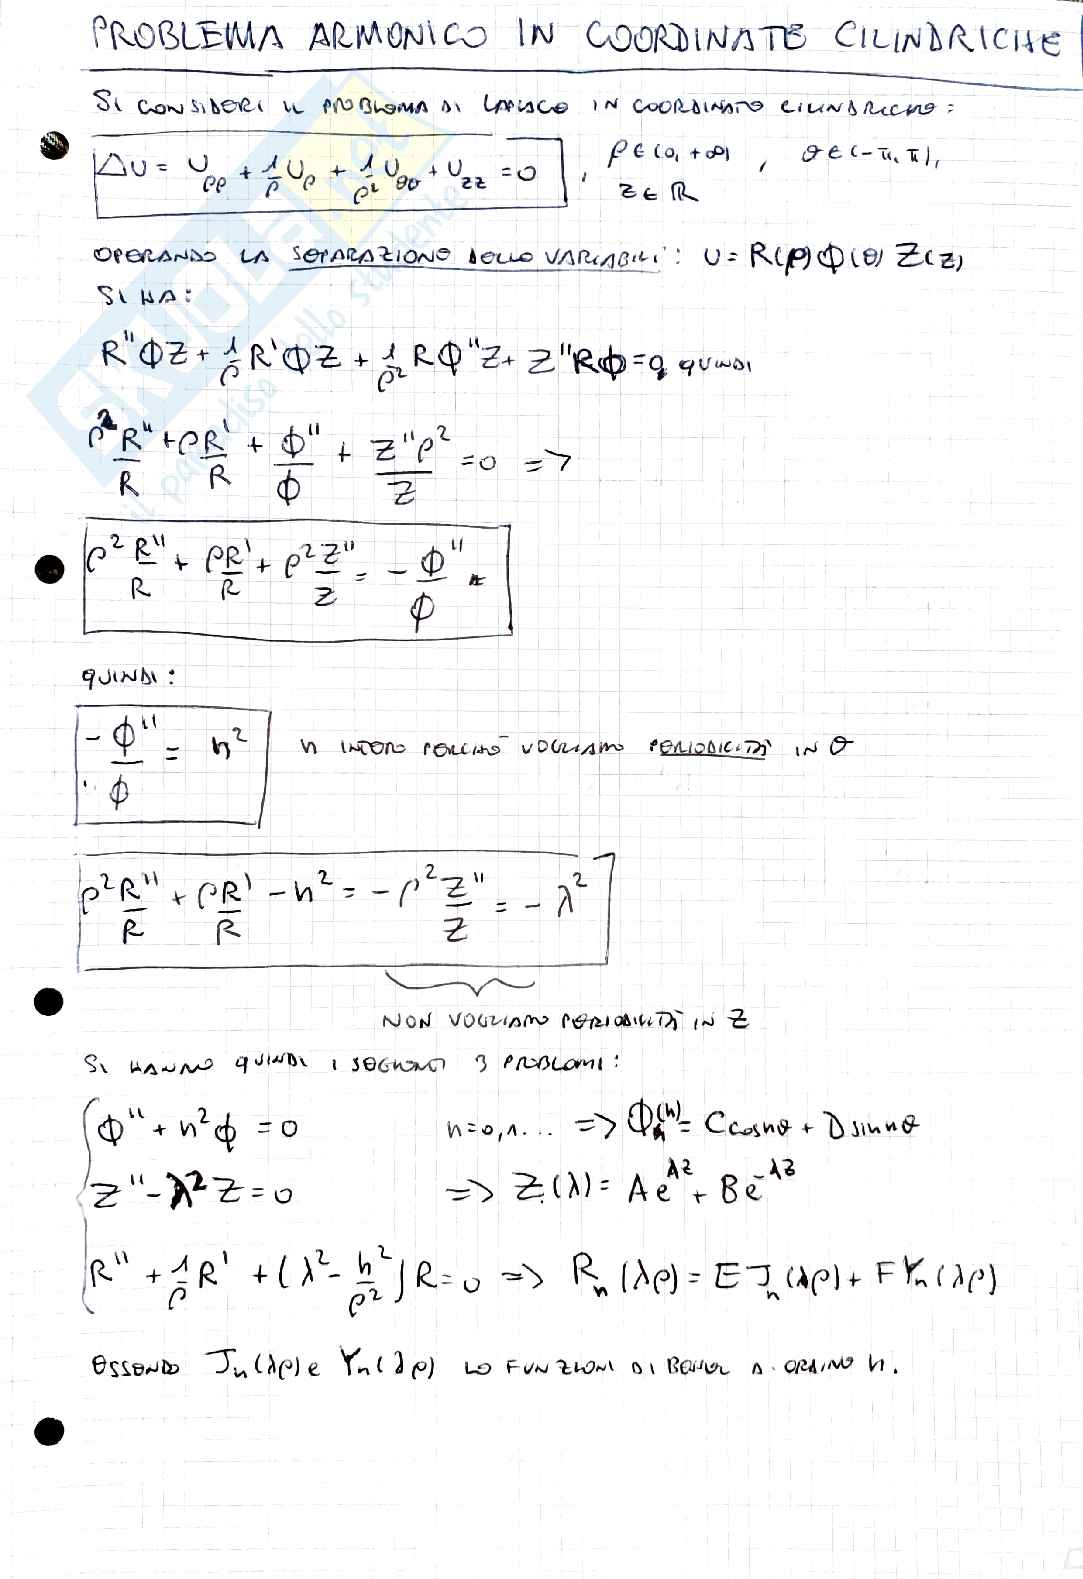 PROBLEMA ARMONICO IN COORDINATE CILINDRICHE
SI CONSIDERI IL PROBLEMA DI LAPLACE IN COORDINATE CILINDRICHE:
ΔU = U_ρρ + 1/ρ U_ρ + 1/ρ² U_θθ + U_zz = 0 , ρ ∈ (0, +∞) , θ ∈ (-π, π),
z ∈ ℝ
OPERANDO LA SEPARAZIONE DELLE VARIABILI: U = R(ρ) Φ(θ) Z(z)
SI HA:
R''ΦZ + 1/ρ R'ΦZ + 1/ρ² RΦ''Z + Z''RΦ = 0, QUINDI
ρ² R''/R + ρR'/R + Φ''/Φ + Z''ρ²/Z = 0 =>
ρ² R''/R + ρR'/R + ρ² Z''/Z = - Φ''/Φ
QUINDI:
-Φ''/Φ = n² n INTERO PERCHÉ VOGLIAMO PERIODICITÀ IN θ
ρ² R''/R + ρR'/R - n² = -ρ² Z''/Z = -λ²
NON VOGLIAMO PERIODICITÀ IN Z
SI HANNO QUINDI I SEGUENTI 3 PROBLEMI:
Φ'' + n²Φ = 0 n=0,1... => Φ_n^(n) = C cos nθ + D sin nθ
Z'' - λ²Z = 0 => Z(λ) = A e^λz + B e^-λz
R'' + 1/ρ R' + (λ² - n²/ρ²)R = 0 => R_n(λρ) = E J_n(λρ) + F Y_n(λρ)
ESSENDO J_n(λρ) e Y_n(λρ) LE FUNZIONI DI BESSEL DI ORDINE n.
skuola.net
il paradiso dello studente